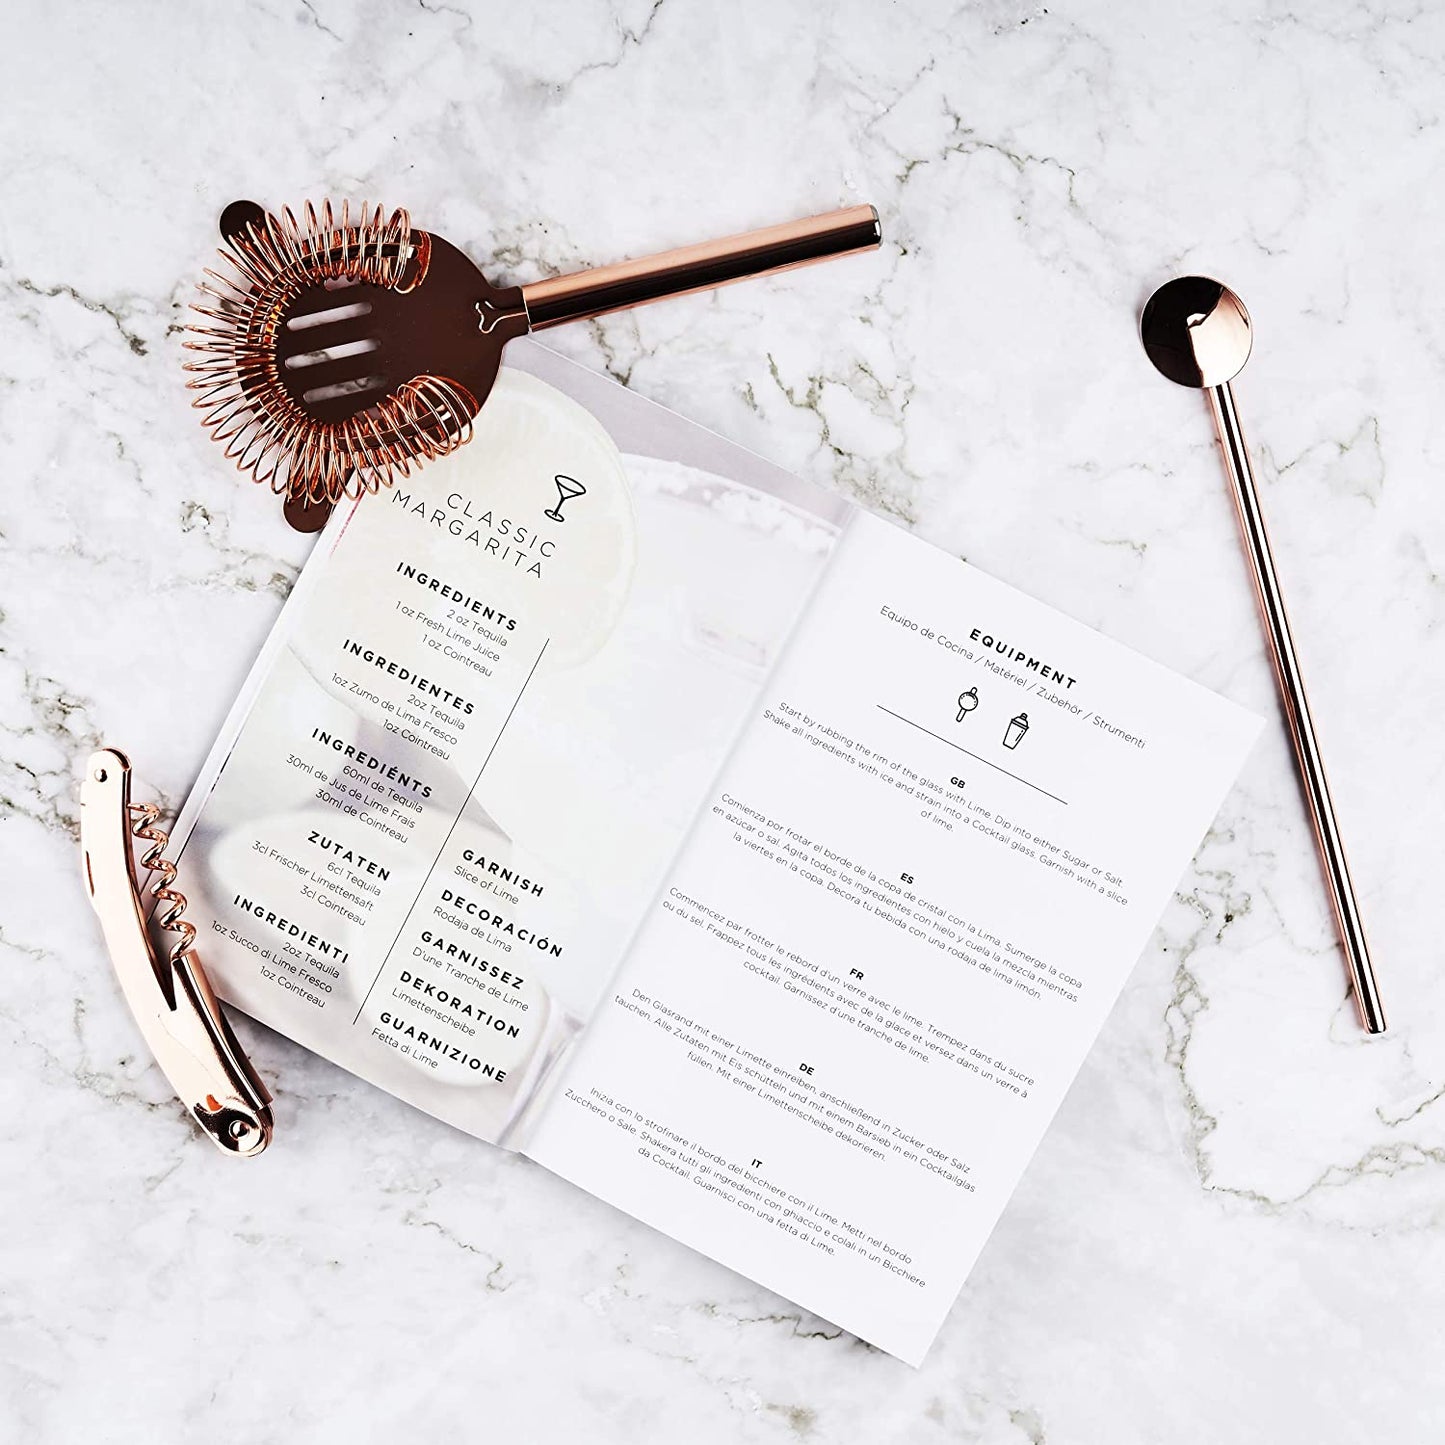 CLASSIC
MARGARITA
INGREDIENTS
2 oz Tequila
1 oz Fresh Lime Juice
1 oz Cointreau
INGREDIENTES
2oz Tequila
1oz Zumo de Lima Fresco
1oz Cointreau
INGREDIÉNTS
60ml de Tequila
30ml de Jus de Lime Frais
30ml de Cointreau
ZUTATEN
6cl Tequila
3cl Frischer Limettensaft
3cl Cointreau
INGREDIENTI
2oz Tequila
1oz Succo di Lime Fresco
1oz Cointreau
GARNISH
Slice of Lime
DECORACIÓN
Rodaja de Lima
GARNISSEZ
D'une Tranche de Lime
DEKORATION
Limettenscheibe
GUARNIZIONE
Fetta di Lime
EQUIPMENT
Equipo de Cocina / Matériel / Zubehör / Strumenti
GB
Start by rubbing the rim of the glass with Lime. Dip into either Sugar or Salt.
Shake all ingredients with ice and strain into a Cocktail glass. Garnish with a slice
of lime.
ES
Comienza por frotar el borde de la copa de cristal con la Lima. Sumerge la copa
en azúcar o sal. Agita todos los ingredientes con hielo y cuela la mezcla mientras
la viertes en la copa. Decora tu bebida con una rodaja de limón.
FR
Commencez par frotter le rebord d'un verre avec le lime. Trempez dans du sucre
ou du sel. Frappez tous les ingrédients avec de la glace et versez dans un verre à
cocktail. Garnissez d'une tranche de lime.
DE
Den Glasrand mit einer Limette einreiben, anschließend in Zucker oder Salz
tauchen. Alle Zutaten mit Eis schütteln und mit einem Barsieb in ein Cocktailglas
füllen. Mit einer Limettenscheibe dekorieren.
IT
Inizia con lo strofinare il bordo del bicchiere con il Lime. Metti nel bordo
Zucchero o Sale. Shakera tutti gli ingredienti con ghiaccio e colali in un Bicchiere
da Cocktail. Guarnisci con una fetta di Lime.